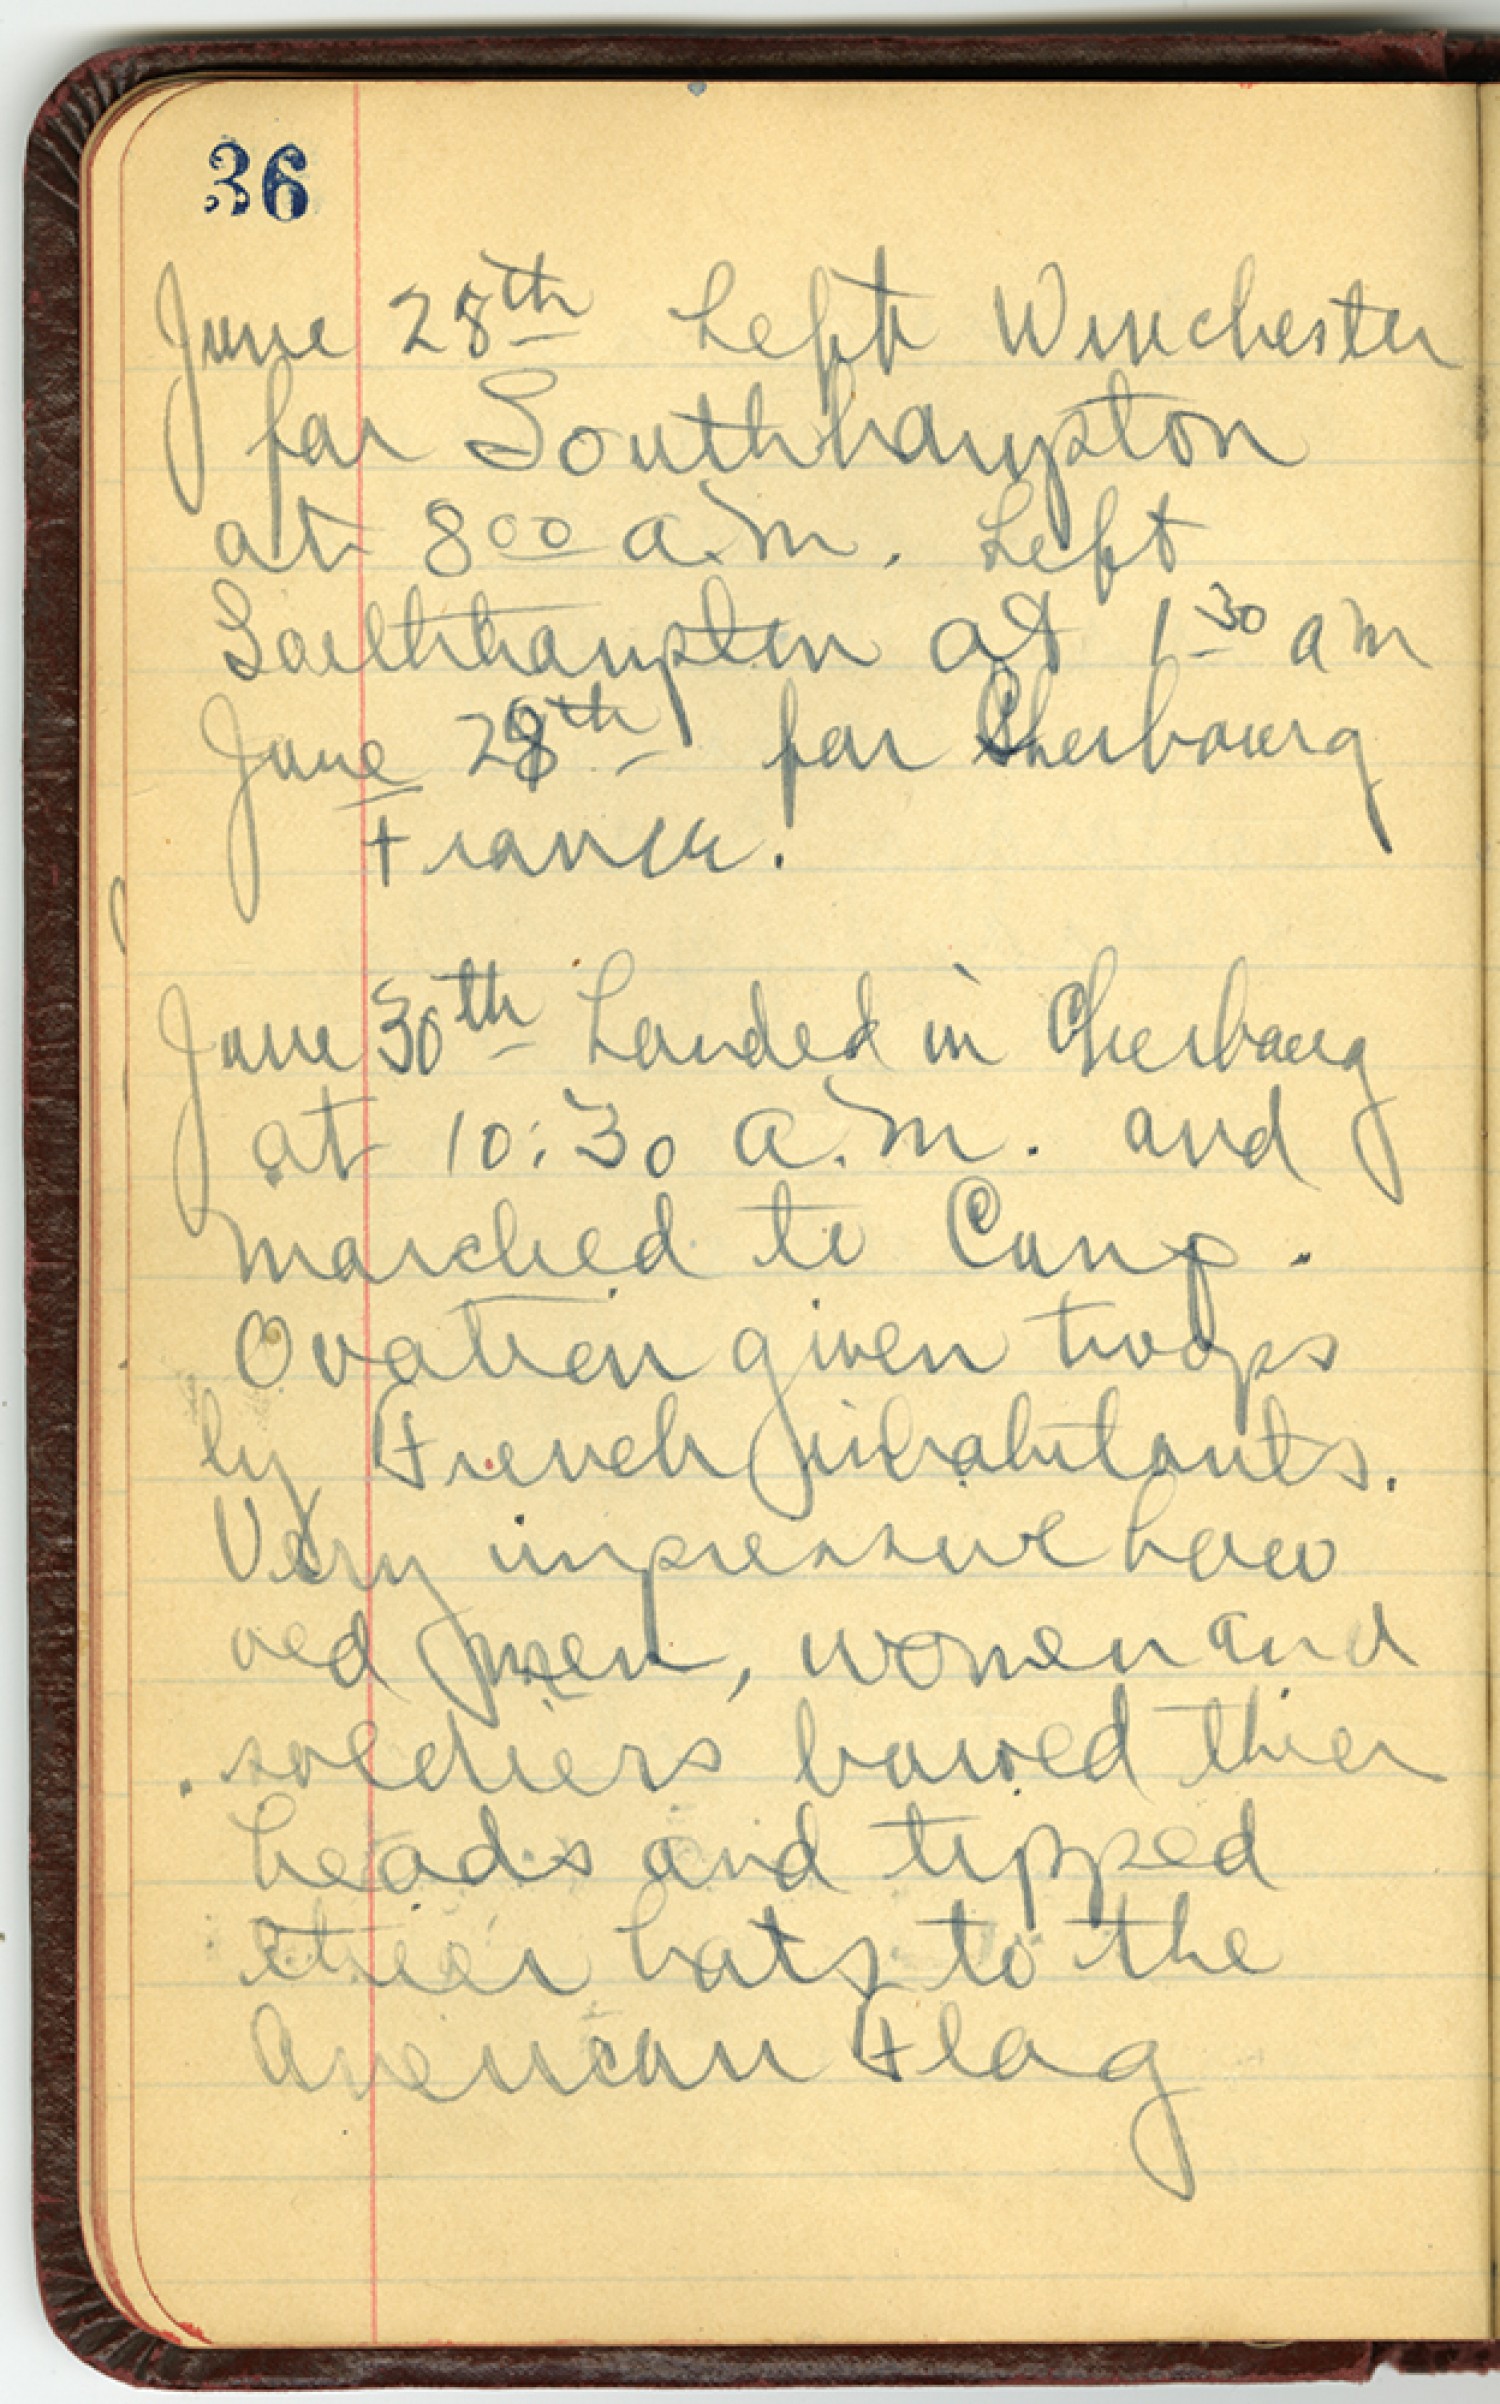 36
June 28th Left Winchester
for Southhampton
at 8 00 a.m. Left
Southhampton at 1 30 am
June 28th for Cherbourg
France.
June 30th Landed in Cherbourg
at 10:30 a.m. and
marched to Camp.
Ovation given troops
by French inhabitants.
Very impressive how
old men, women and
soldiers bowed thier
heads and tipped
thier hats to the
American Flag